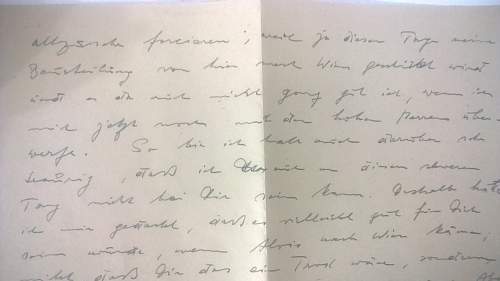 allzusehr forcieren, weil ja dieser Tage meine
Beurteilung von hier nach Wien geschickt wird
und es da mir nicht ganz gut ist, wenn ich
mich jetzt noch mit den hohen Herren über-
werfe. So bin ich halt auch darüber sehr
traurig, daß ich auch an diesem schweren
Tag nicht bei Dir sein kann. Deshalb hatte
ich mir gedacht, daß es vielleicht gut für Dich
sein würde, wenn Alois nach Wien käme,
nicht daß Dir das ein Trost wäre, sondern
Alois